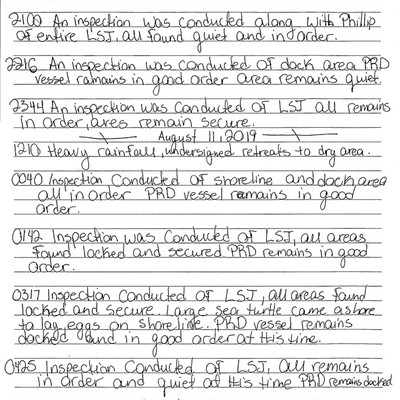 2100 An inspection was conducted along with Phillip
of entire LSJ, all found quiet and in order.
2216 An inspection was conducted of dock area PRD
vessel ramains in good order area remains quiet.
2344 An inspection was conducted of LSJ all remains
in order, ares remain secure.
August 11, 2019
1210 Heavy rainfall, undersigned retreats to dry area.
0040 Inspection Conducted of shoreline and dock area
all in order PRD vessel remains in good
order.
0142 Inspection was Conducted of LSJ, all areas
found locked and secured PRD remains in good
order.
0317 Inspection Conducted of LSJ, all areas found
locked and secure. Large sea turtle came ashore
to lay eggs on shoreline. PRD vessel remains
docked and in good order at this time.
0425 Inspection Conducted of LSJ, all remains
in order and quiet at this time PRD remains docked